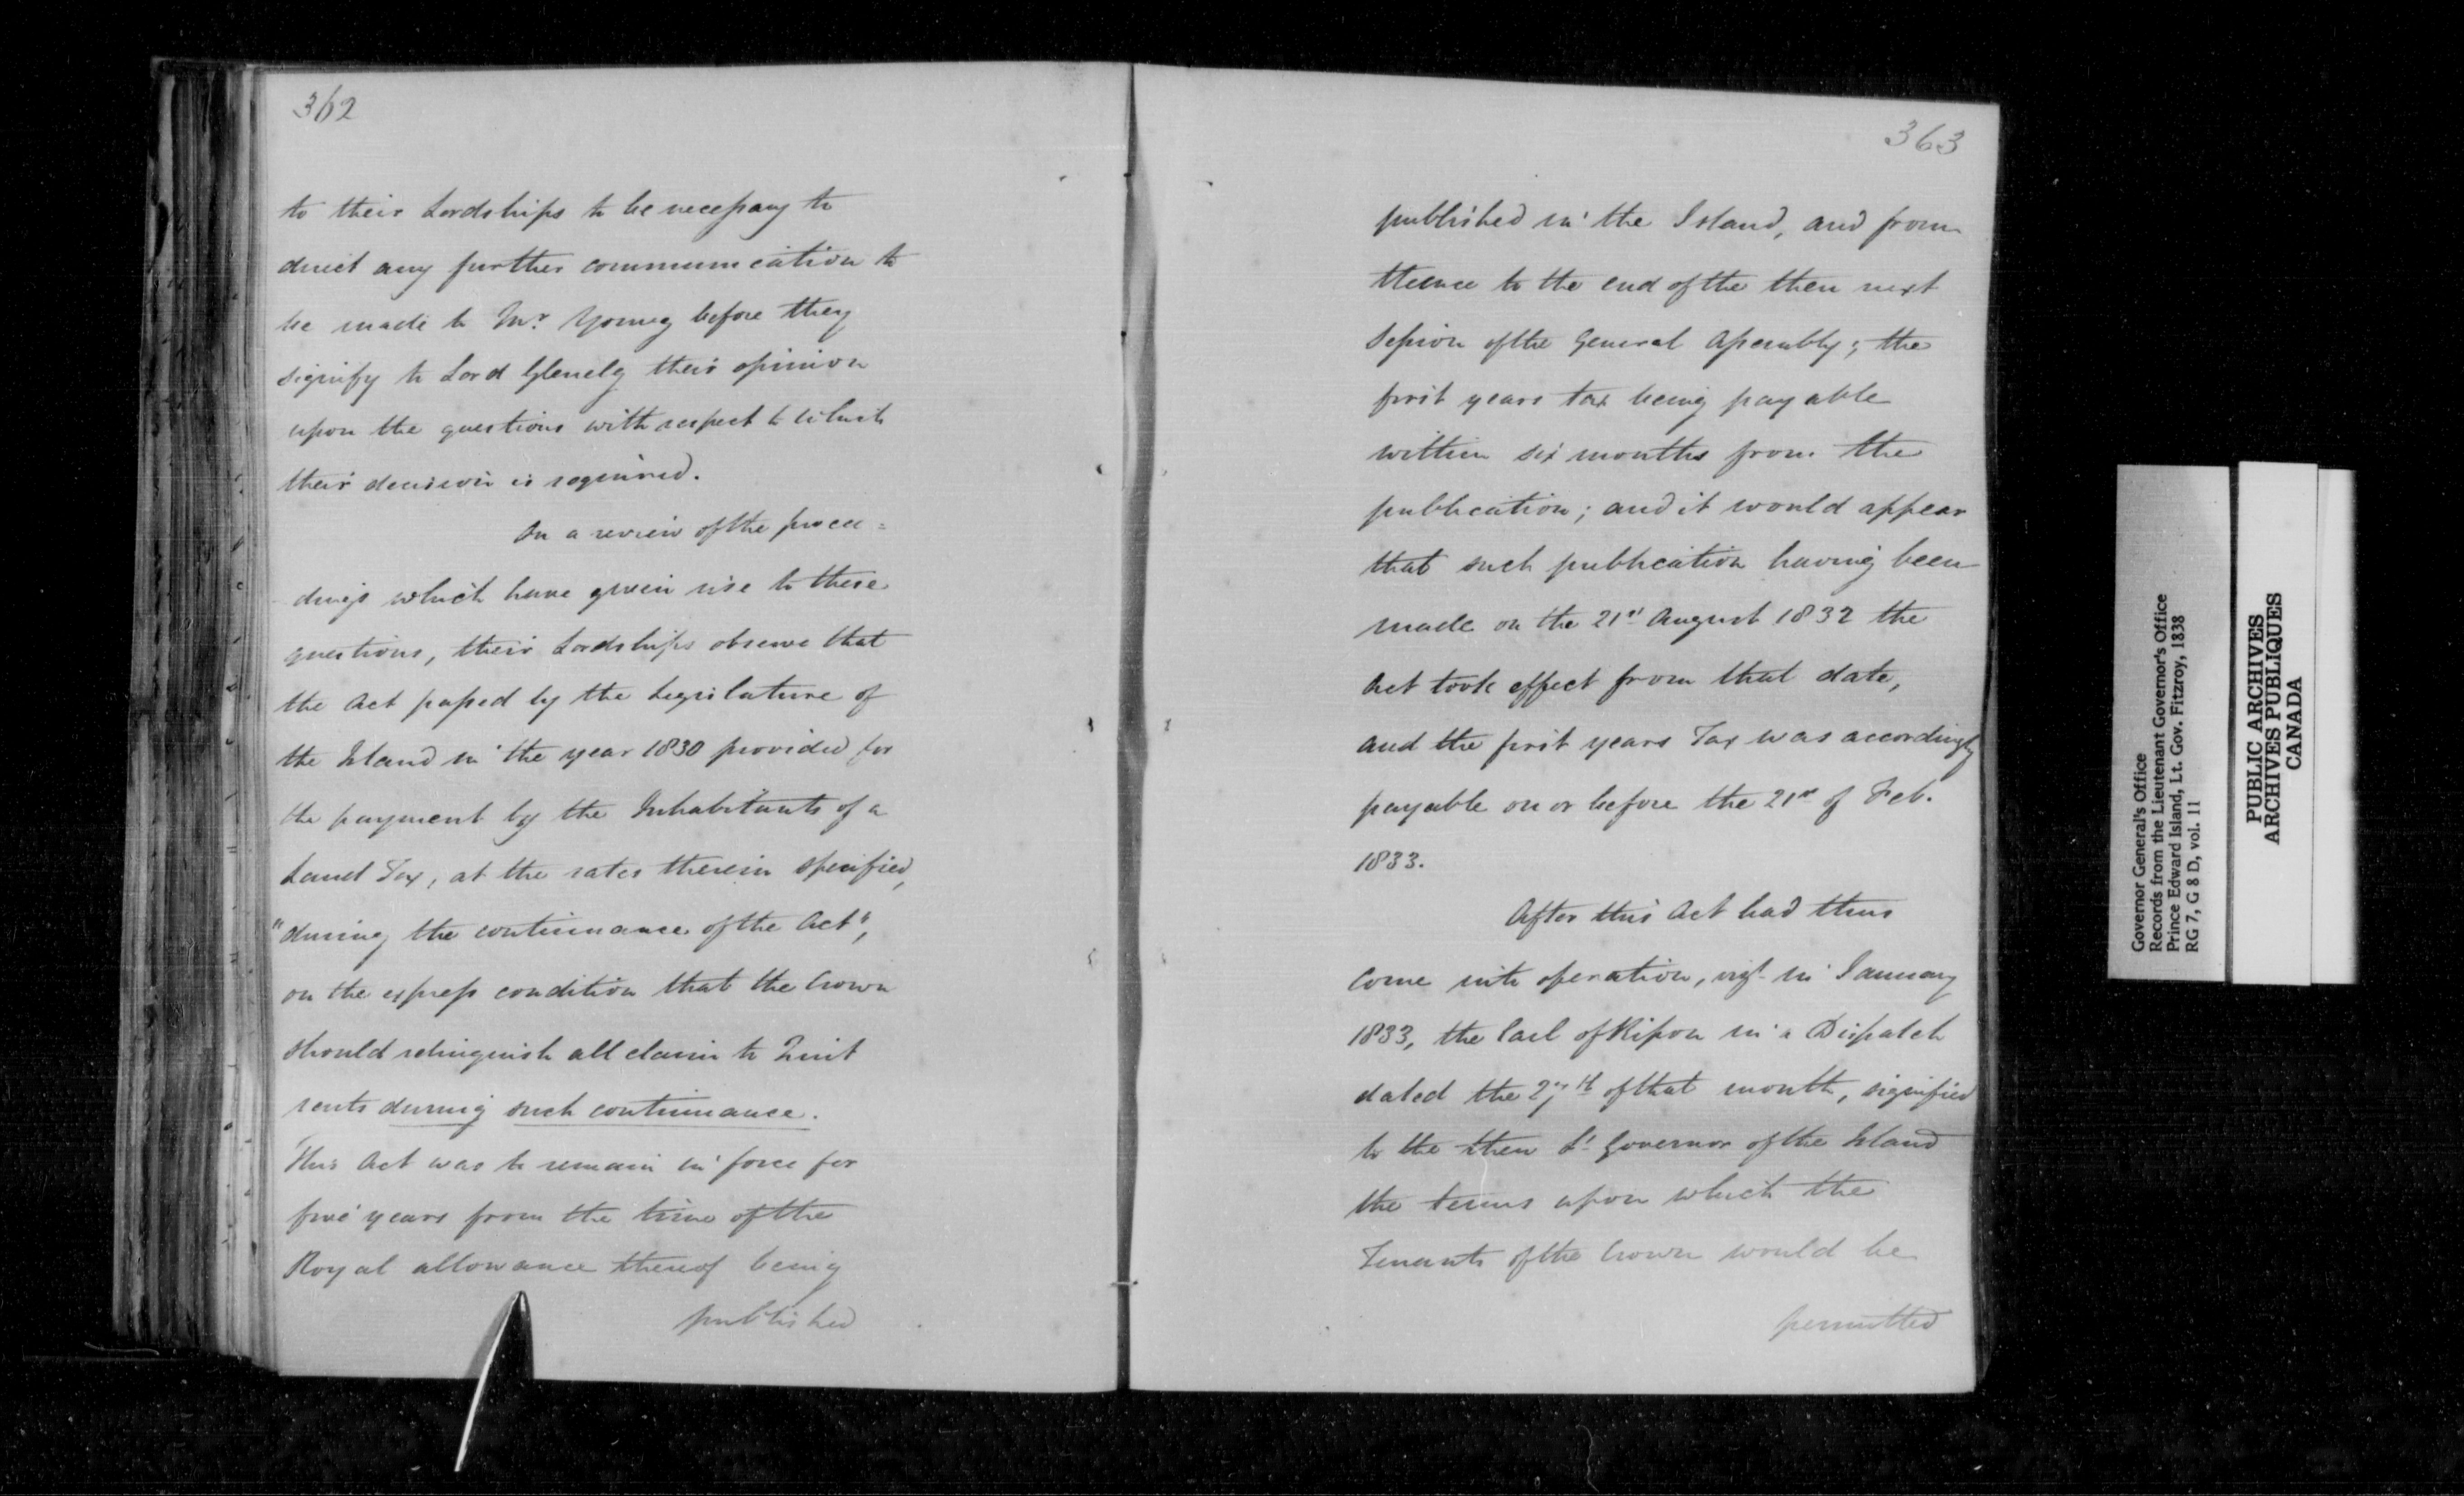 362
to their Lordships to be necessary to
direct any further communication to
be made to Mr. Young before they
signify to Lord Glenelg their opinion
upon the questions with respect to which
their decision is required.
On a review of the procee=
dings which have given rise to these
questions, their Lordships observe that
the Act passed by the Legislature of
the Island in the year 1830 provided for
the payment by the Inhabitants of a
Land Tax, at the rates therein specified,
"during the continuance of the Act",
on the express condition that the Crown
should relinquish all claim to Quit
rents during such continuance.
This Act was to remain in force for
five years from the time of the
Royal allowance thereof being
published
363
published in the Island, and from
thence to the end of the then next
Session of the General Assembly; the
first years tax being payable
within six months from the
publication; and it would appear
that such publication having been
made on the 21st August 1832 the
Act took effect from that date,
and the first years Tax was accordingly
payable on or before the 21st of Feb.
1833.
After this Act had thus
come into operation, vizt. in January
1833, the Earl of Ripon in a Dispatch
dated the 27th of that month, signified
to the then Lt Governor of the Island
the terms upon which the
Tenants of the Crown would be
permitted
Governor General's Office
Records from the Lieutenant Governor's Office
Prince Edward Island, Lt. Gov. Fitzroy, 1838
RG 7, G 8 D, vol. 11
PUBLIC ARCHIVES
ARCHIVES PUBLIQUES
CANADA